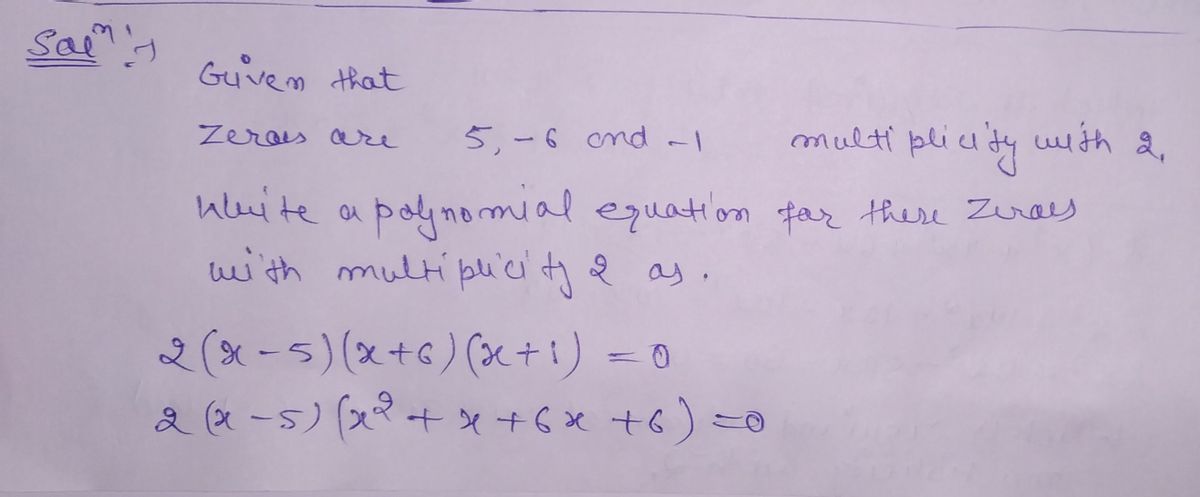 Solⁿ :-
Given that
Zeroes are 5, -6 and -1 multiplicity with 2,
Write a polynomial equation for these Zeroes
with multiplicity 2 as.
2(x-5)(x+6)(x+1) = 0
2(x-5)(x²+x+6x+6)=0